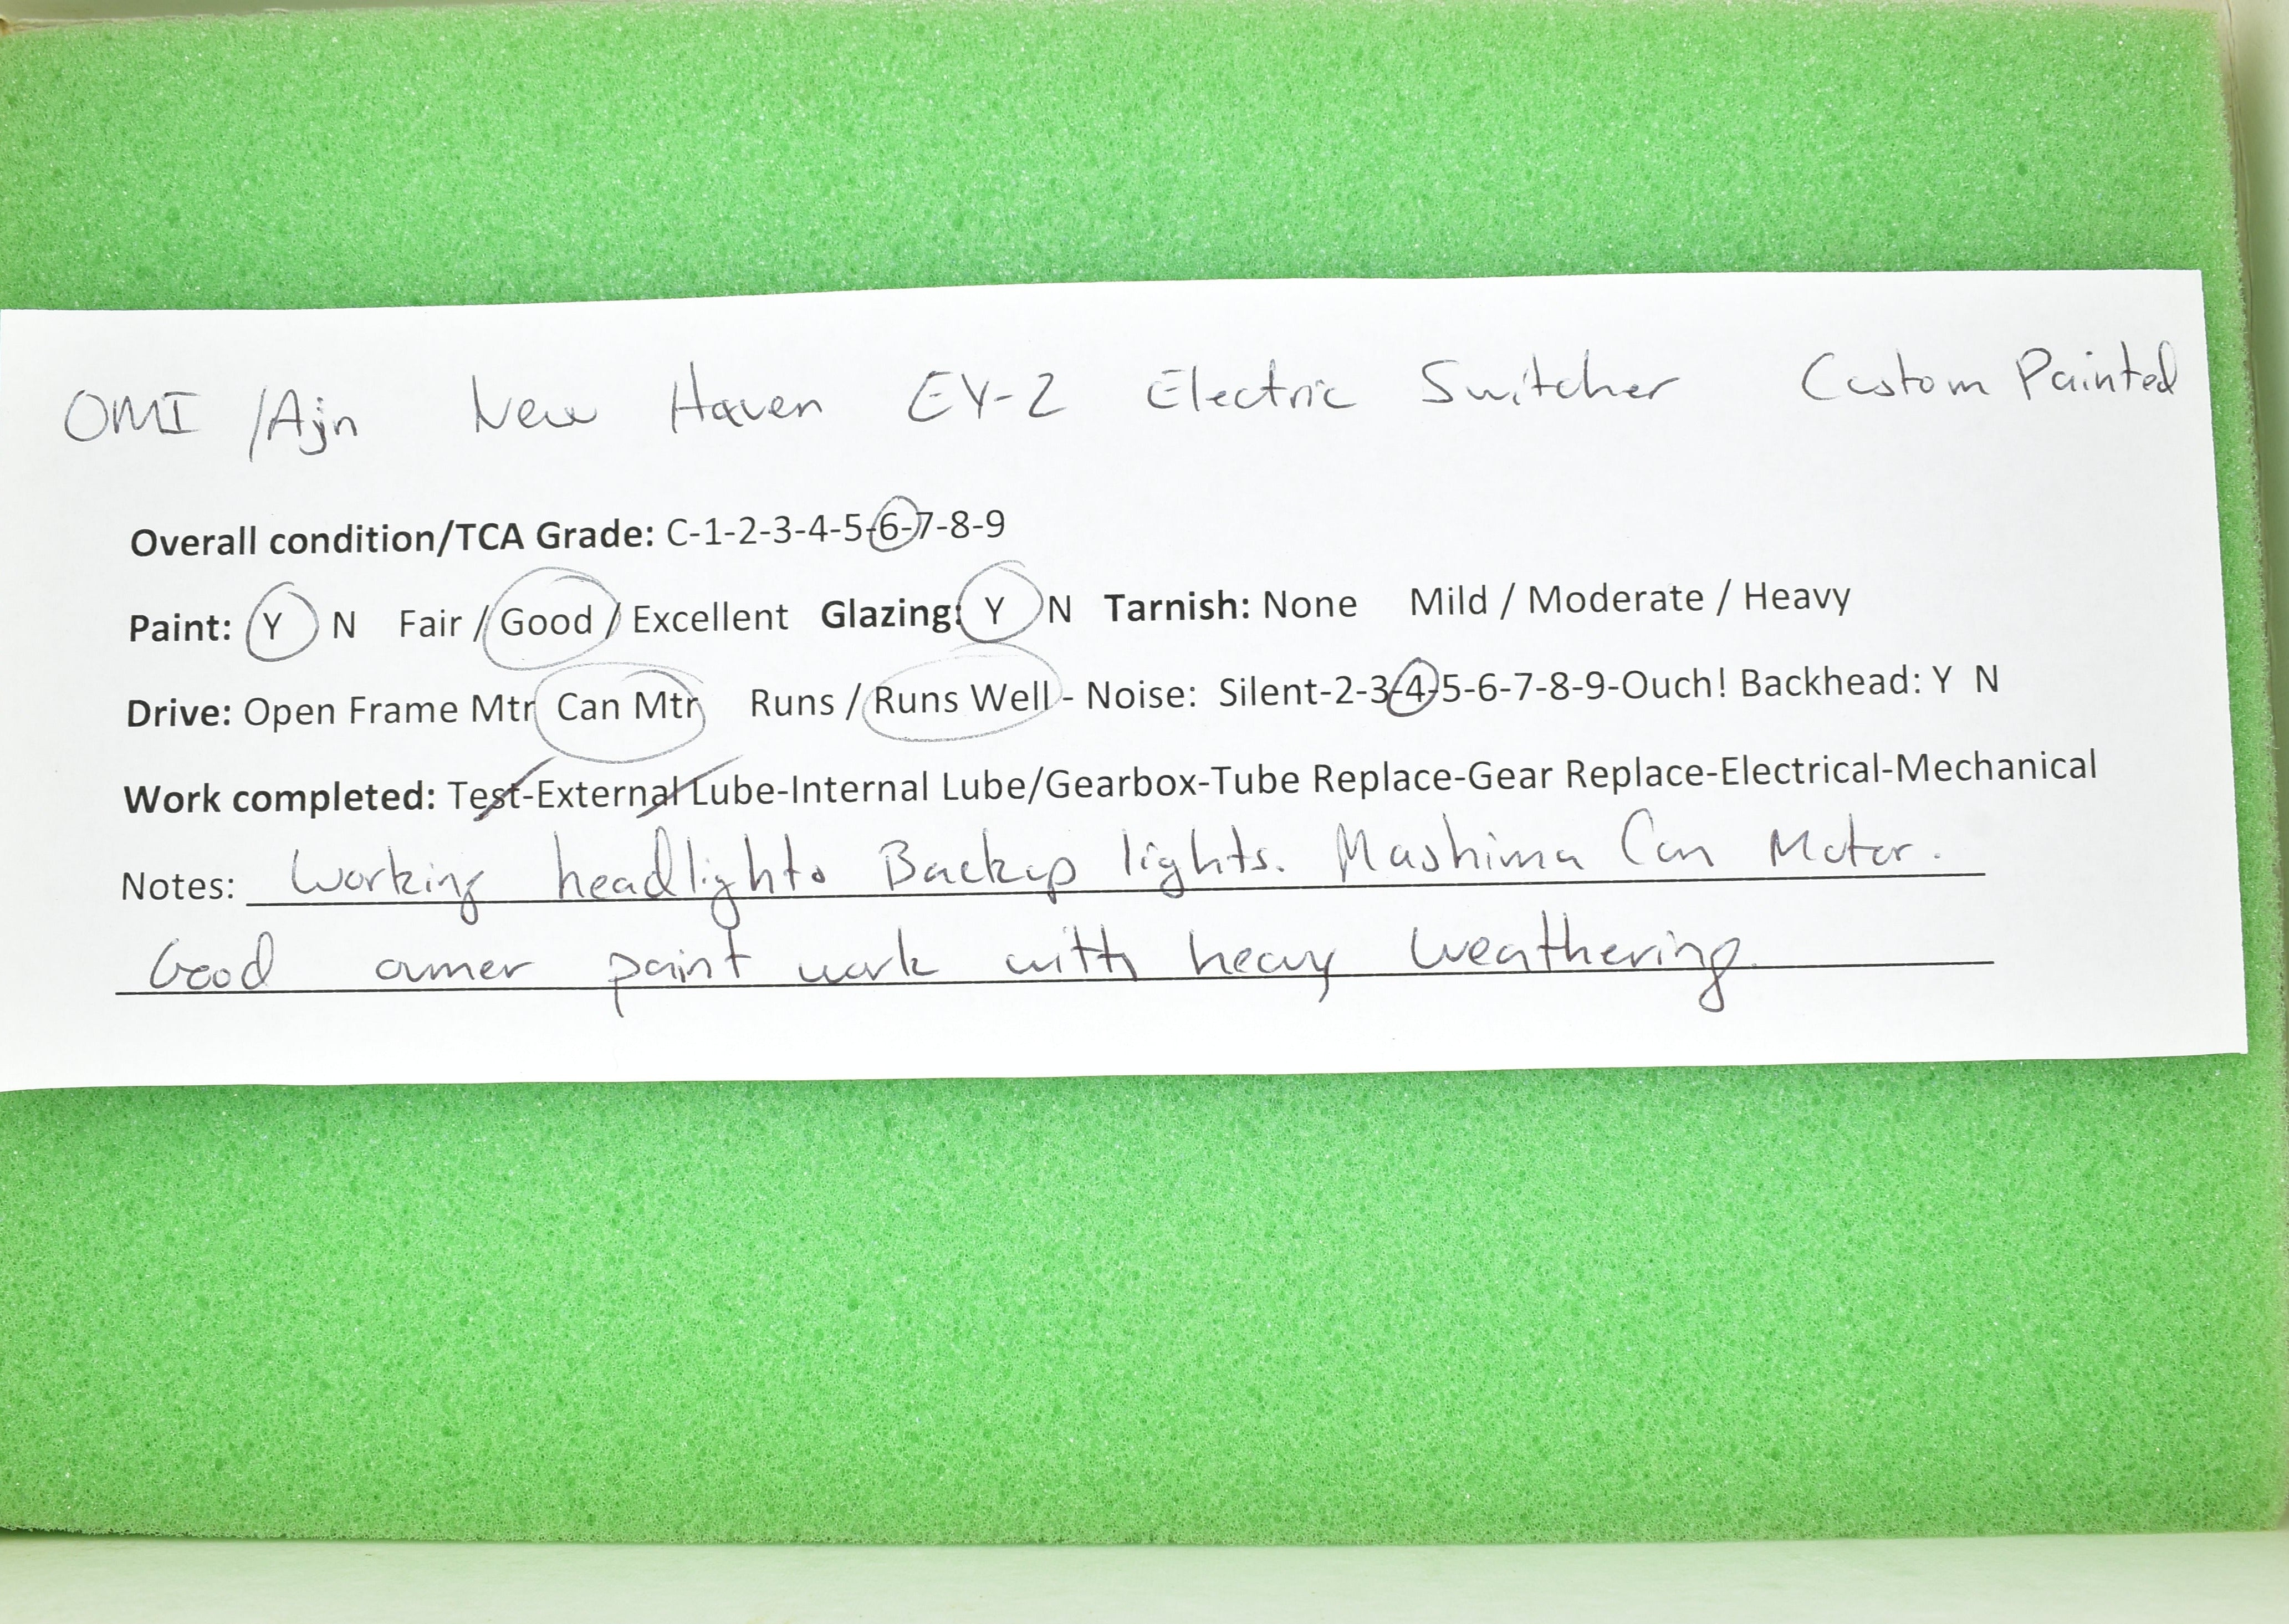 OMI /Ajn New Haven EY-2 Electric Switcher Custom Painted
Overall condition/TCA Grade: C-1-2-3-4-5-6-7-8-9
Paint: Y N Fair / Good / Excellent Glazing: Y N Tarnish: None Mild / Moderate / Heavy
Drive: Open Frame Mtr Can Mtr Runs / Runs Well - Noise: Silent-2-3-4-5-6-7-8-9-Ouch! Backhead: Y N
Work completed: Test-External Lube-Internal Lube/Gearbox-Tube Replace-Gear Replace-Electrical-Mechanical
Notes: Working headlights Backup lights. Mashima Can Motor.
Good owner paint work with heavy weathering.